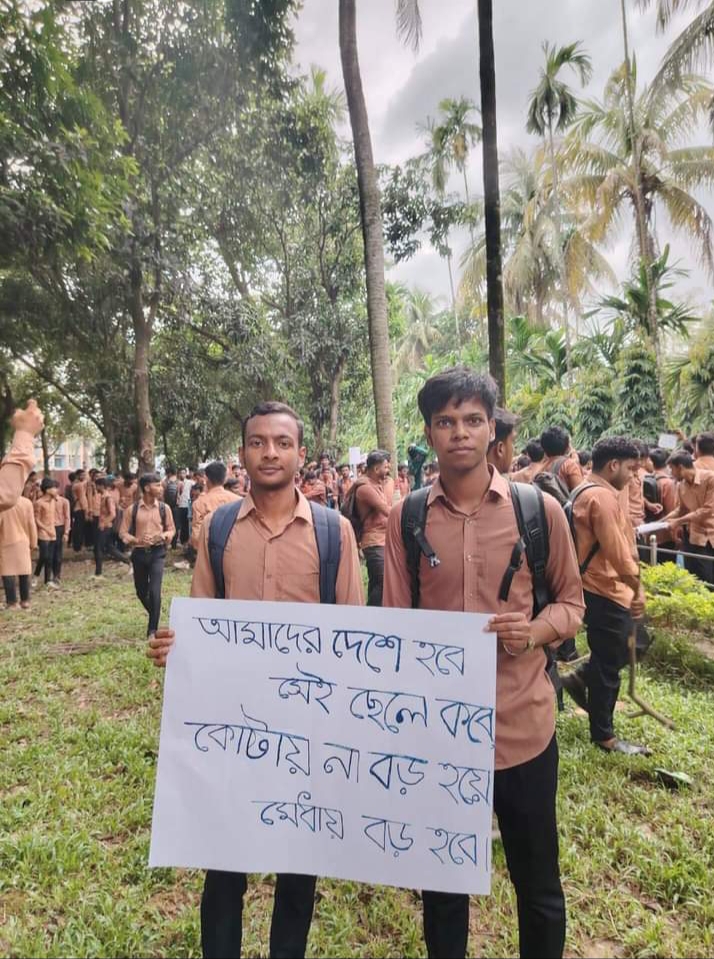 আমাদের দেশে হবে
সেই ছেলে কবে
কোটায় না বড় হয়ে
মেধায় বড় হবে।